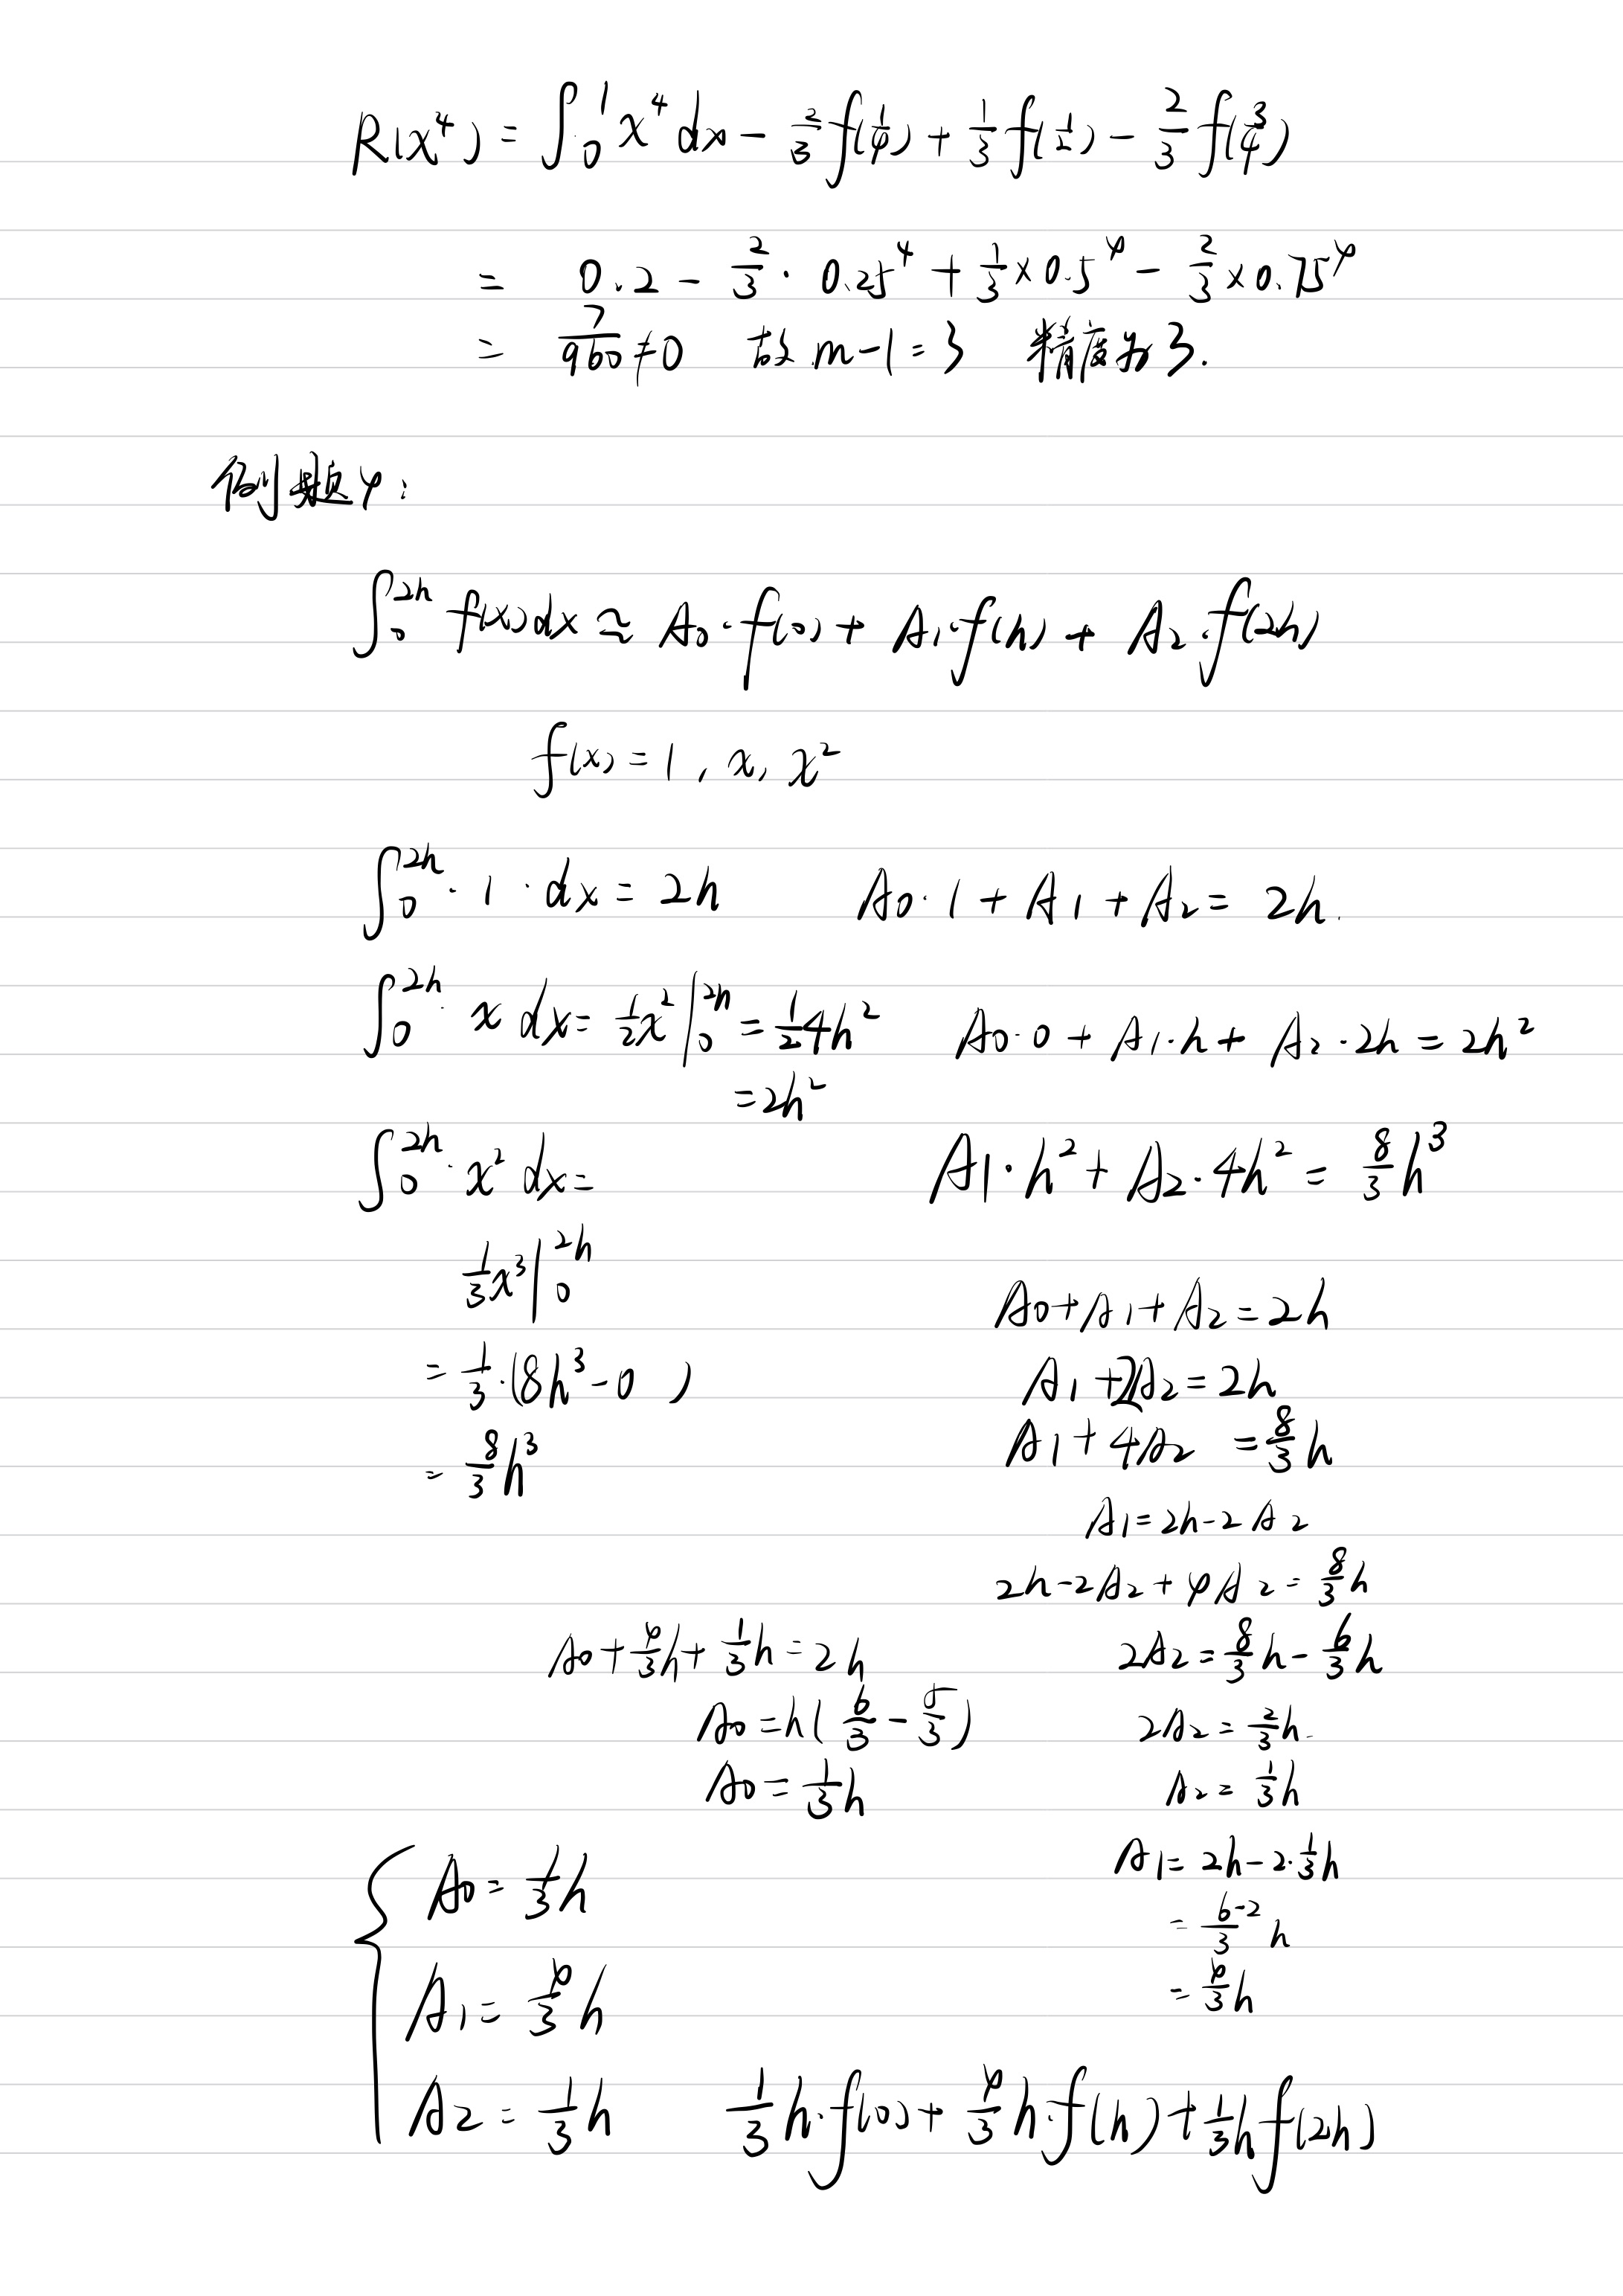 R(x⁴) = ∫₀¹ x⁴ dx − 2/3 f(1/4) + 1/3 f(1/2) − 2/3 f(3/4)
= 0.2 − 2/3 · 0.25⁴ + 1/3 × 0.5⁴ − 2/3 × 0.75⁴
= 7/960 ≠ 0 故 m−1 = 3 精度为3.
例题4:
∫₀²ʰ f(x) dx ≈ A₀·f(0) + A₁·f(h) + A₂·f(2h)
f(x) = 1, x, x²
∫₀²ʰ · 1 · dx = 2h A₀·1 + A₁ + A₂ = 2h.
∫₀²ʰ x dx = 1/2 x² |₀²ʰ = 1/2 4h² A₀·0 + A₁·h + A₂·2h = 2h²
= 2h²
∫₀²ʰ · x² dx = A₁·h² + A₂·4h² = 8/3 h³
1/3 x³ |₀²ʰ
A₀ + A₁ + A₂ = 2h
= 1/3 · (8h³ − 0) A₁ + 2A₂ = 2h
= 8/3 h³ A₁ + 4A₂ = 8/3 h
A₁ = 2h − 2A₂
2h − 2A₂ + 4A₂ = 8/3 h
A₀ + 4/3 h + 1/3 h = 2h 2A₂ = 8/3 h − 6/3 h
A₀ = h(6/3 − 5/3) 2A₂ = 2/3 h.
A₀ = 1/3 h A₂ = 1/3 h
A₁ = 2h − 2·1/3 h
A₀ = 1/3 h = (6−2)/3 h
A₁ = 4/3 h = 4/3 h
A₂ = 1/3 h 1/3 h·f(0) + 4/3 h·f(h) + 1/3 h f(2h)